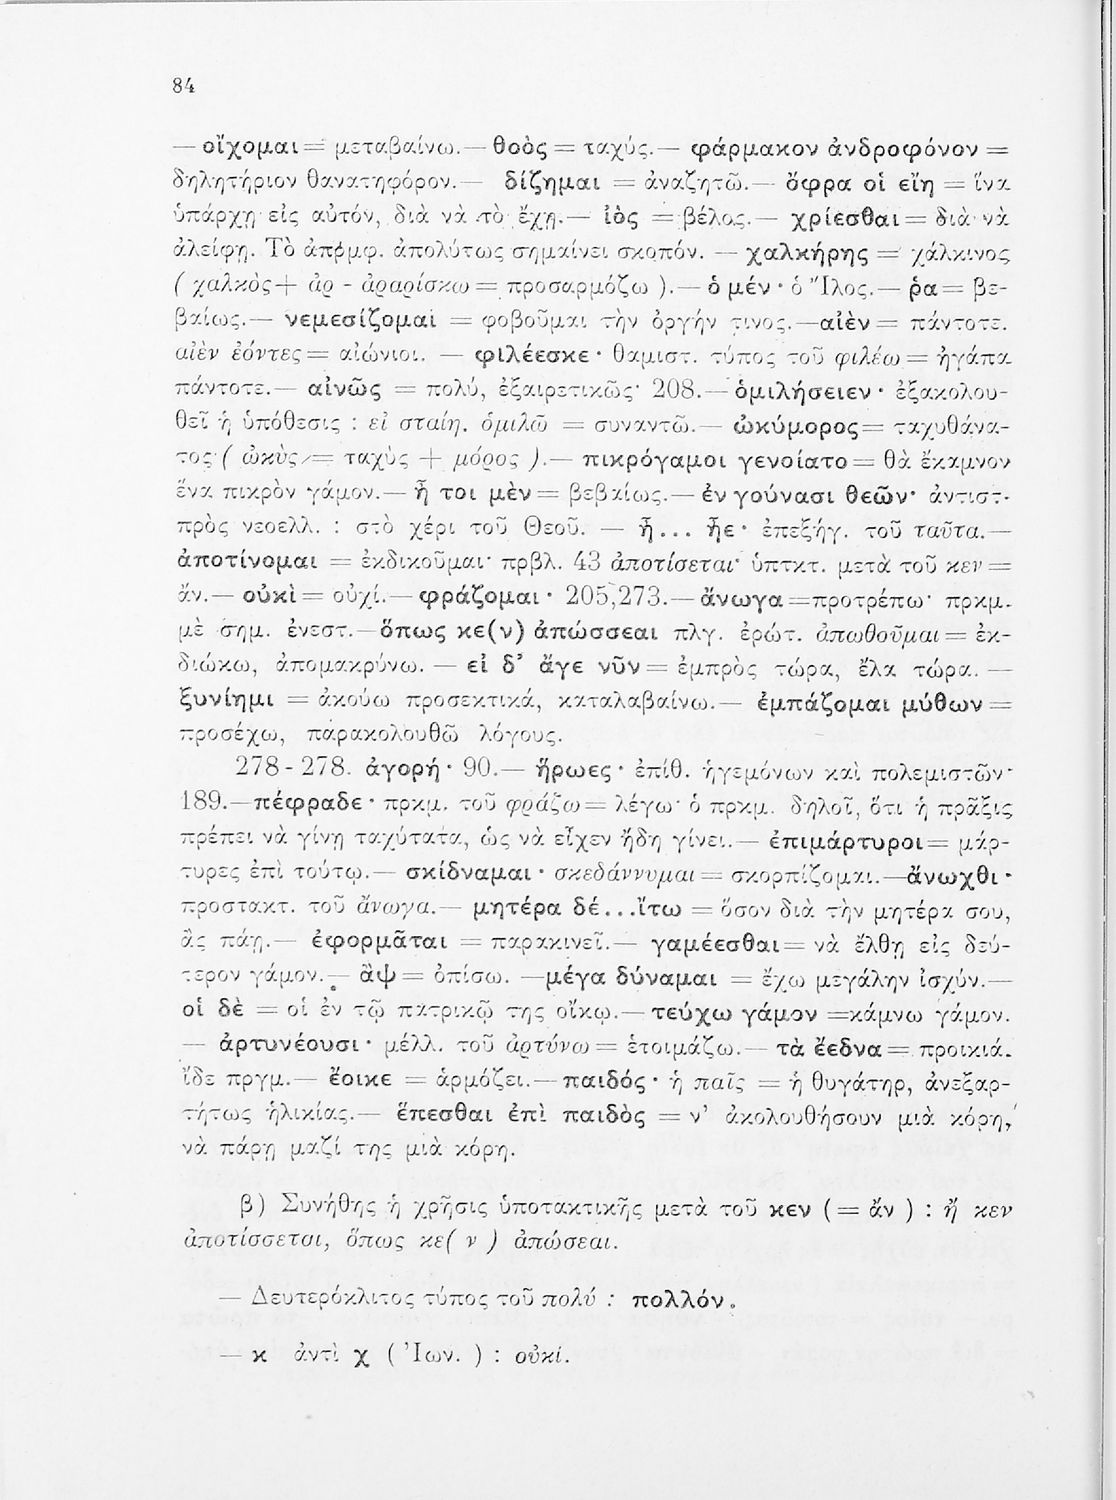 84
— οἴχομαι = μεταβαίνω.— θοὸς = ταχύς.— φάρμακον ἀνδροφόνον =
δηλητήριον θανατηφόρον.— δίζημαι = ἀναζητῶ.— ὄφρα οἱ εἴη = ἵνα
ὑπάρχῃ εἰς αὐτόν, διὰ νὰ τὸ ἔχῃ.— ἰὸς = βέλος.— χρίεσθαι = διὰ νὰ
ἀλείφῃ. Τὸ ἀπρμφ. ἀπολύτως σημαίνει σκοπόν. — χαλκήρης = χάλκινος
( χαλκὸς + ἀρ - ἀραρίσκω = προσαρμόζω ).— ὁ μέν · ὁ Ἴλος.— ῥα = βε-
βαίως.— νεμεσίζομαι = φοβοῦμαι τὴν ὀργήν τινος.—αἰὲν = πάντοτε.
αἰὲν ἐόντες = αἰώνιοι. — φιλέεσκε · θαμιστ. τύπος τοῦ φιλέω = ἠγάπα
πάντοτε.— αἰνῶς = πολύ, ἐξαιρετικῶς· 208.— ὁμιλήσειεν · ἐξακολου-
θεῖ ἡ ὑπόθεσις : εἰ σταίη. ὁμιλῶ = συναντῶ.— ὠκύμορος = ταχυθάνα-
τος ( ὠκὺς = ταχὺς + μόρος ).— πικρόγαμοι γενοίατο = θὰ ἔκαμνον
ἕνα πικρὸν γάμον.— ἦ τοι μὲν = βεβαίως.— ἐν γούνασι θεῶν· ἀντιστ.
πρὸς νεοελλ. : στὸ χέρι τοῦ Θεοῦ. — ἦ... ἦε · ἐπεξήγ. τοῦ ταῦτα.—
ἀποτίνομαι = ἐκδικοῦμαι· πρβλ. 43 ἀποτίσεται· ὑπτκτ. μετὰ τοῦ κεν =
ἄν.— οὐκὶ = οὐχί.— φράζομαι · 205,273.— ἄνωγα =προτρέπω· πρκμ.
μὲ σημ. ἐνεστ.— ὅπως κε(ν) ἀπώσσεαι πλγ. ἐρώτ. ἀπωθοῦμαι = ἐκ-
διώκω, ἀπομακρύνω. — εἰ δ᾽ ἄγε νῦν = ἐμπρὸς τώρα, ἔλα τώρα. —
ξυνίημι = ἀκούω προσεκτικά, καταλαβαίνω.— ἐμπάζομαι μύθων =
προσέχω, παρακολουθῶ λόγους.
278 - 278. ἀγορή · 90.— ἥρωες · ἐπίθ. ἡγεμόνων καὶ πολεμιστῶν·
189.—πέφραδε · πρκμ. τοῦ φράζω = λέγω· ὁ πρκμ. δηλοῖ, ὅτι ἡ πρᾶξις
πρέπει νὰ γίνῃ ταχύτατα, ὡς νὰ εἶχεν ἤδη γίνει.— ἐπιμάρτυροι = μάρ-
τυρες ἐπὶ τούτῳ.— σκίδναμαι · σκεδάννυμαι = σκορπίζομαι.—ἄνωχθι ·
προστακτ. τοῦ ἄνωγα.— μητέρα δέ...ἴτω = ὅσον διὰ τὴν μητέρα σου,
ἂς πάῃ.— ἐφορμᾶται = παρακινεῖ.— γαμέεσθαι = νὰ ἔλθῃ εἰς δεύ-
τερον γάμον.— ἂψ = ὀπίσω. —μέγα δύναμαι = ἔχω μεγάλην ἰσχύν.—
οἱ δὲ = οἱ ἐν τῷ πατρικῷ της οἴκῳ.— τεύχω γάμον =κάμνω γάμον.
— ἀρτυνέουσι · μέλλ. τοῦ ἀρτύνω = ἑτοιμάζω.— τὰ ἔεδνα = προικιά.
ἴδε πργμ.— ἔοικε = ἁρμόζει.— παιδός · ἡ παῖς = ἡ θυγάτηρ, ἀνεξαρ-
τήτως ἡλικίας.— ἕπεσθαι ἐπὶ παιδὸς = ν᾽ ἀκολουθήσουν μιὰ κόρη,
νὰ πάρῃ μαζί της μιὰ κόρη.
β) Συνήθης ἡ χρῆσις ὑποτακτικῆς μετὰ τοῦ κεν ( = ἄν ) : ἤ κεν
ἀποτίσσεται, ὅπως κε( ν ) ἀπώσεαι.
— Δευτερόκλιτος τύπος τοῦ πολύ : πολλόν.
— κ ἀντὶ χ ( Ἰων. ) : οὐκί.